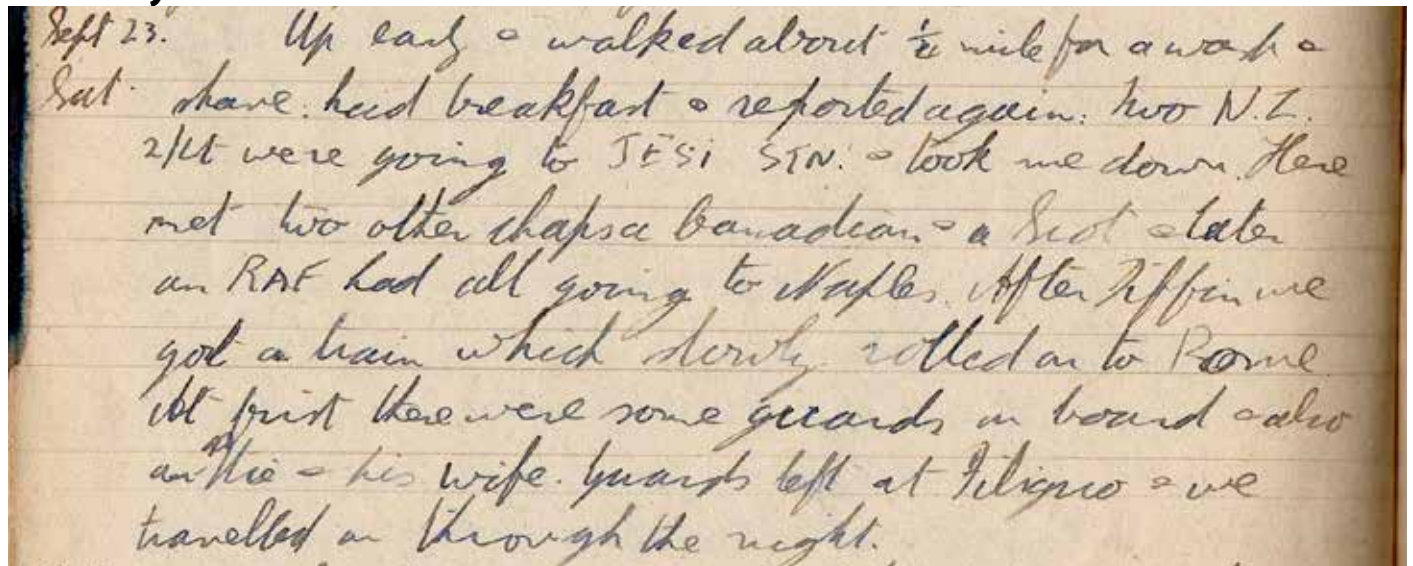 Sept 23. Up early & walked about ½ mile for a wash &
Sat. shave. had breakfast & reported again. Two N.Z.
2/Lt were going to JESI STN. & took me down. Here
met two other chaps a Canadian & a Scot & later
an RAF had all going to Naples. After Tiffin we
got a train which slowly rolled on to Rome.
At first there were some guards on board & also
an & his wife. Guards left at & we
travelled on through the night.